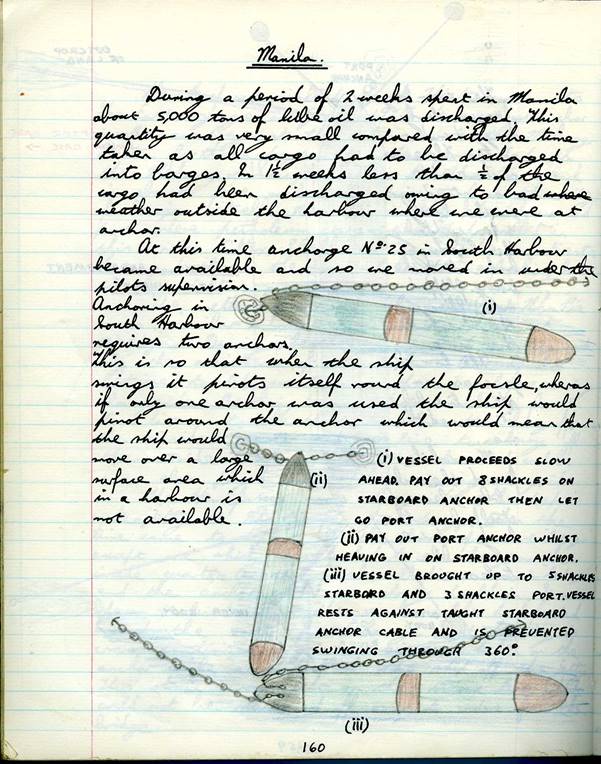 Manila.
During a period of 2 weeks spent in Manila
about 5,000 tons of lube oil was discharged. This
quantity was very small compared with the time
taken as all cargo had to be discharged
into barges. In 1½ weeks less than ½ of the
cargo had been discharged owing to bad where
weather outside the harbour where we were at
anchor.
At this time anchorage No. 25 in South Harbour
became available and so we moved in under the
pilots supervision.
Anchoring in
South Harbour
requires two anchors.
This is so that when the ship
swings it pivots itself round the focsle, wheras
if only one anchor was used the ship would
pivot around the anchor which would mean that
the ship would
move over a large
surface area which
in a harbour is
not available.
(i)
(ii)
(i) VESSEL PROCEEDS SLOW
AHEAD. PAY OUT 8 SHACKLES ON
STARBOARD ANCHOR THEN LET
GO PORT ANCHOR.
(ii) PAY OUT PORT ANCHOR WHILST
HEAVING IN ON STARBOARD ANCHOR.
(iii) VESSEL BROUGHT UP TO 5 SHACKLES
STARBORD AND 3 SHACKLES PORT. VESSEL
RESTS AGAINST TAUGHT STARBOARD
ANCHOR CABLE AND IS PREVENTED
SWINGING THROUGH 360°.
(iii)
160